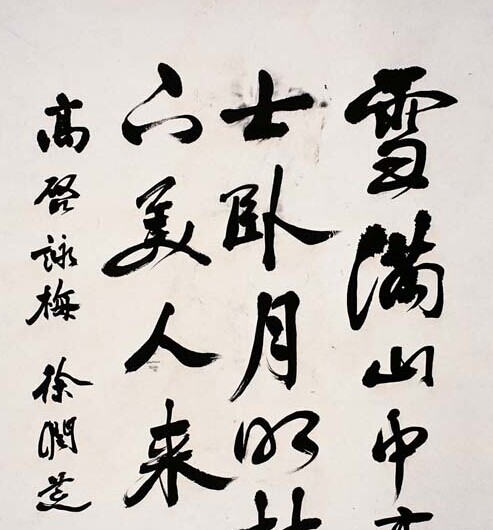 雪满山中高
士卧月明林
下美人来
高启詠梅 徐润芝